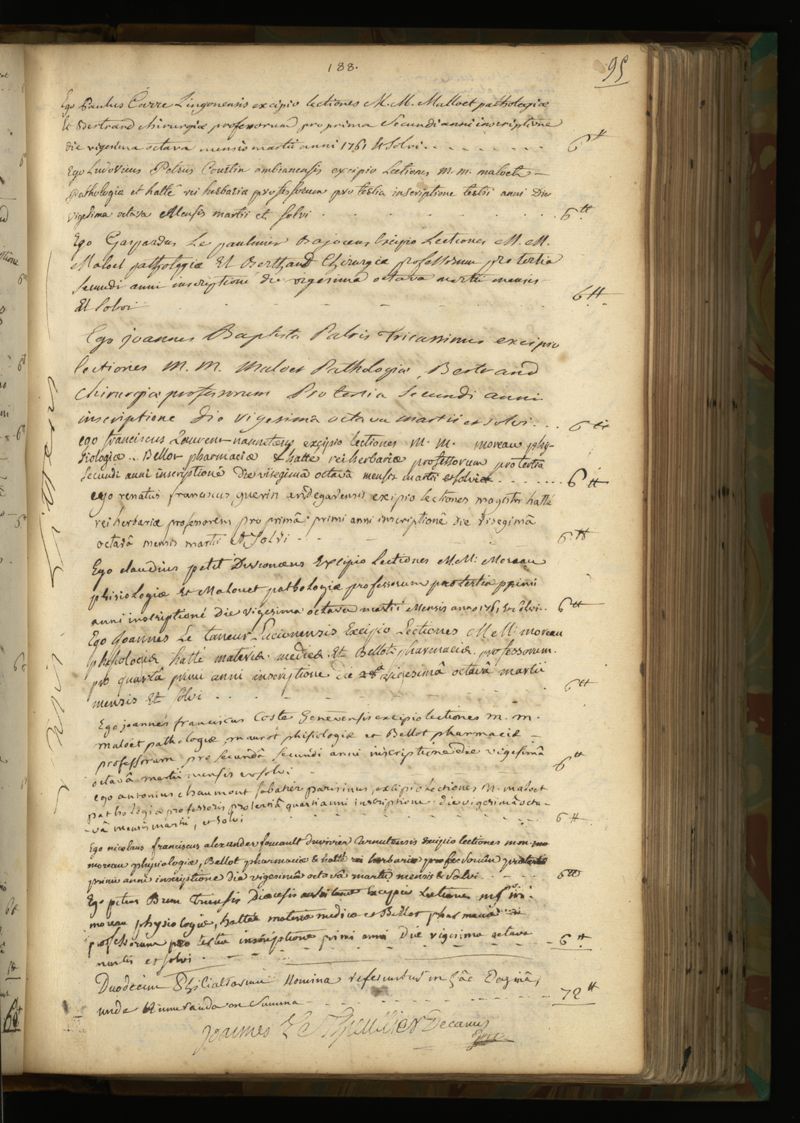 188.
95
Ego Paulus Carre Lingonensis excipio lectiones M. M. Malloet pathologiæ
et Bertrand chirurgiæ professorum pro prima secundi anni inscriptione
die vigesima octava mensis martii anni 1761 et solvi - - - - - - 6tt
Ego Ludovicus Petrus Coustin ambianensis excipio Lectiones m. m. maloet -
pathologiæ et hatté rei herbariæ professorum pro tertia inscriptione tertii anni Die
vigesima octava Mensis martii et solvi . . . . . . 6tt
Ego Gaspardus Le paulmier Bajoceus Excipio Lectiones M. M.
Maloet pathologiæ Et Bertrand Chirurgiæ professorum pro tertia
secundi anni inscriptione die vigesima octava martii mensis
Et solvi - - - - - 6tt
Ego joannes Baptista Patris tricassinus excipio
lectiones M. M. Maloet Pathologiæ, Bertrand
chirurgiæ professorum Pro tertia secundi anni
inscriptione die vigesima octava martii et solvi . . . 6tt
ego franciscus Laurent nannetæus excipio lectiones M. M. moreau phy-
siologiæ . Bellot pharmaciæ & hatté rei herbariæ professorum pro tertia
secundi anni inscriptione die visegimâ octavâ mensis martii et solvi - - - - - 6tt
ego renatus franciscus guerin andegavensis excipio lectiones magistri hatté
rei herbariæ professorem pro primâ primi anni inscriptionê die visegimâ
octavâ mensis martii et solvi - - - - 6tt
Ego claudius petit Excipio lectiones M. M. Moreau
phisiologiæ et Malouet pathologiæ professorum pro tertia primi
anni inscriptioné Die vigesima octava martii Mensis anno 1761 et solvi . . 6tt
Ego Joannes Le taneur Lucionensis Excipio Lectiones M. M. moreau
hatté materiæ medicæ Et Bellot pharmaciæ professorum
pro quartâ primi anni inscriptione die vigesimâ octavâ martii
mensis Et solvi - - - - - 6tt
Ego joannes franciscus Coste Genevensis excipio lectiones m. m.
maloët pathologiæ, phisiologiæ et Bellot pharmaciæ -
professorum pro secundâ secundi anni inscriptione die vigesimâ
octavâ martii mensis et solvi - - - - 6tt
ego antonius chaumont sabatier parisinus, excipio lectiones M. maloet
pathologiæ professoris pro tertiâ quarti anni inscriptione die vigesimâ octa-
vâ mensis martii, et solvi - - - - 6tt
Ego nicolaus franciscus alexander foucault duvivier Carnutensis excipio lectiones
moreau physiologiæ, Bellot pharmaciæ & hatté rei herbariæ professorum
primi anni inscriptione die vigesimâ octavâ martii mensis & solvi - - - 6tt
Ego petrus Brun Diœcesis excipio Lectiones
moreau physiologiæ, hatté materiæ medicæ et Bellot pharmaciæ
professorum pro tertia inscriptione primi anni Die vigesima octava
martis et solvi - - - - - 6tt
Duodecim Philiatrorum Nomina referuntur in hâc Paginâ,
unde Numeranda on summa - - - - - 72tt
Joannes Le Decanus